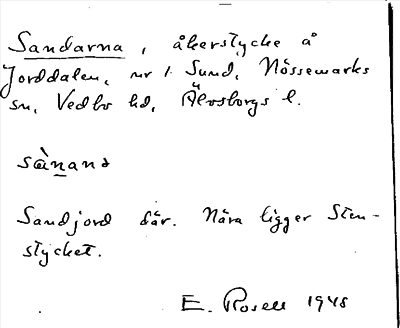 Sandarna, åkerstycke å
Jorddalen, nr 1 Sund, Nössemarks
sn, Vedbo hd, Älvsborgs l.
sànana
Sandjord där. Nära ligger Sten-
stycket.
E. Rosell 1948